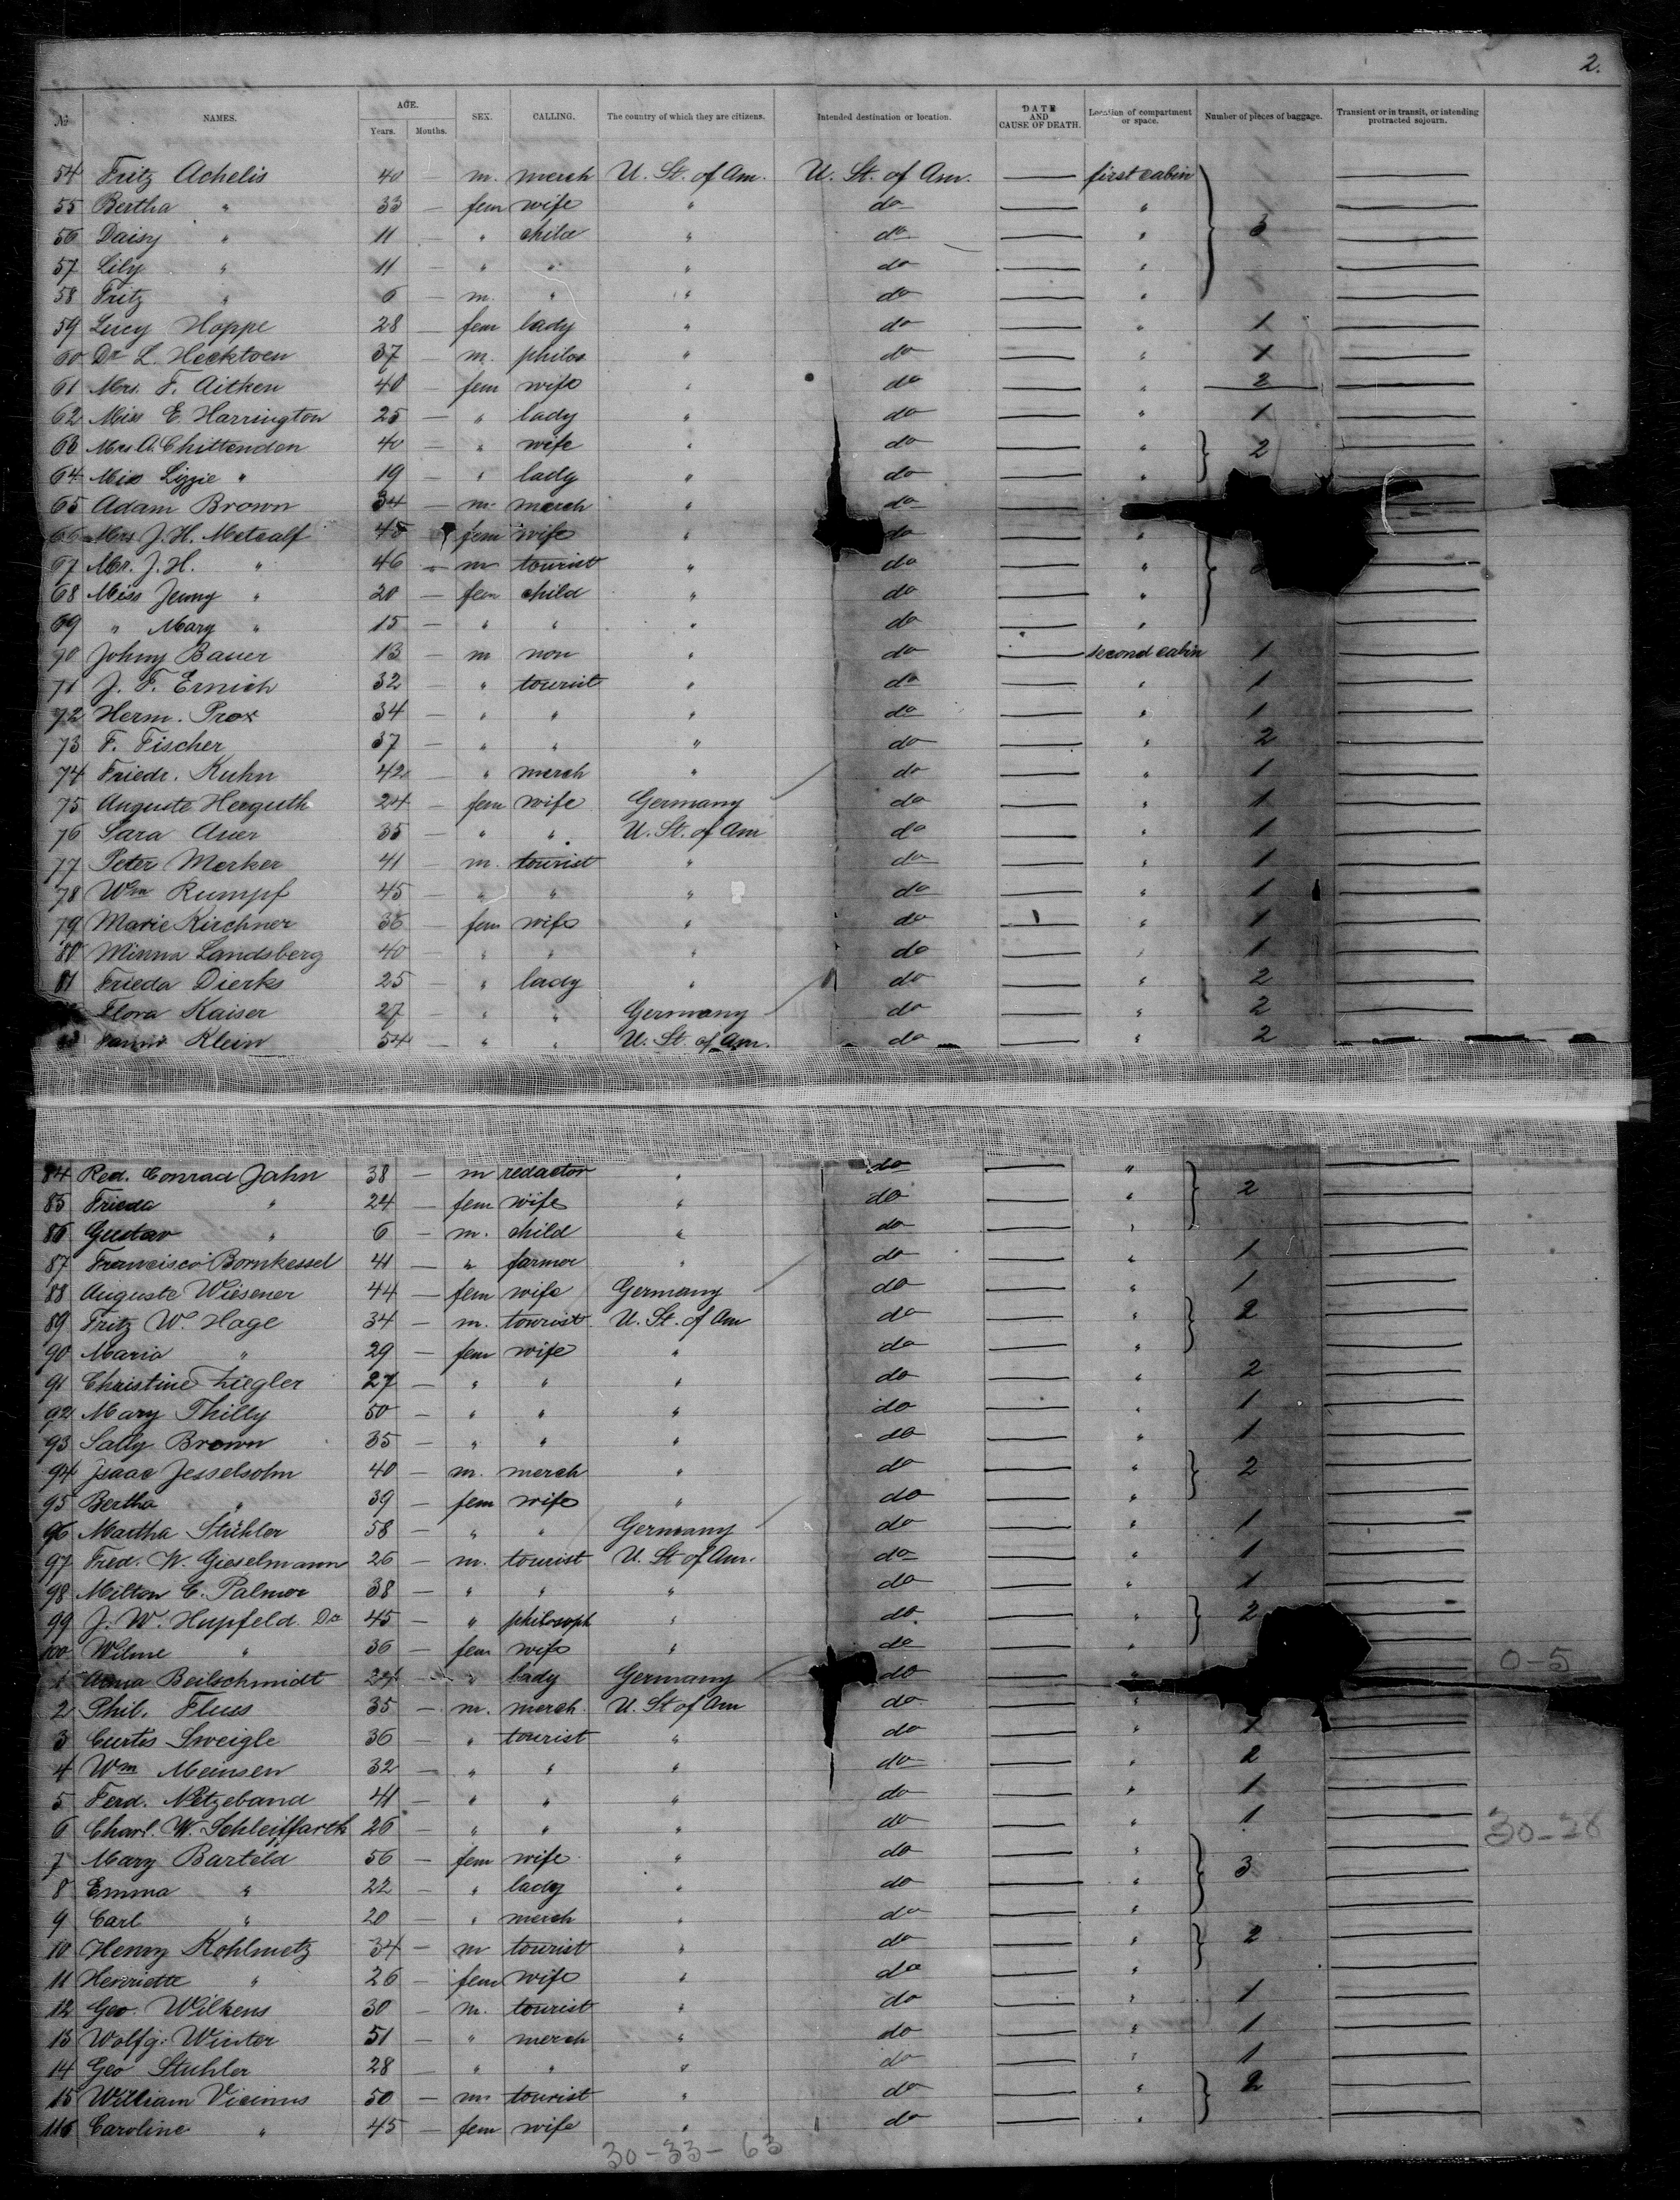 2.
No NAMES. AGE. Years. Months. SEX. CALLING. The country of which they are citizens. Intended destination or location. DATE AND CAUSE OF DEATH. Location of compartment or space. Number of pieces of baggage. Transient or in transit, or intending protracted sojourn.
54 Fritz Achelis 40 — m. merch U. St. of Am. U. St. of Am. — first cabin —
55 Bertha " 33 — fem wife " do — " —
56 Daisy " 11 — " child " do — " —
57 Lily " 11 — " " " do — " —
58 Fritz " 6 — m. " " do — " —
59 Lucy Hoppe 28 — fem lady " do — " 1 —
60 Dr L. Hecktoen 37 — m. philos " do — " 1 —
61 Mrs. F. Aitken 40 — fem wife " do — " 2 —
62 Miss E. Harrington 25 — " lady " do — " 1 —
63 Mrs A. Chittenden 40 — " wife " do — " 2 —
64 Miss Lizzie " 19 — " lady " do — " —
65 Adam Brown 34 — m. merch " do —
66 Mrs J. H. Metcalf 45 fem wife " do — " —
67 Mr. J. H. " 46 — m tourist " do — " —
68 Miss Jenny " 20 — fem child " do — " —
69 " Mary " 15 — " " " do — " —
70 Johny Bauer 13 — m non " do — second cabin 1 —
71 J. F. Ernich 32 — " tourist " do — " 1 —
72 Herm. Prox 34 — " " " do — " 1 —
73 F. Fischer 37 — " " " do — " 2 —
74 Friedr. Kuhn 42 — " merch " do — " 1 —
75 Auguste Herguth 24 — fem wife Germany do — " 1 —
76 Sara Auer 35 — " " U. St. of Am do — " 1 —
77 Peter Merker 41 — m. tourist " do — " 1 —
78 Wm Rumpf 45 — " " " do — " 1 —
79 Marie Kirchner 36 — fem wife " do — " 1 —
80 Minna Landsberg 40 — " " " do — " 1 —
81 Frieda Dierks 25 — " lady " do — " 2 —
Flora Kaiser 27 — " " Germany do — " 2 —
Klein 54 — " " U. St. of Am. do — " 2
84 Red. Conrad Jahn 38 — m redactor " do — " —
85 Frieda " 24 — fem wife " do — " 2 —
86 Gustav " 6 — m. child " do — " —
87 Francisco Bornkessel 41 — " farmer " do — " 1 —
88 Auguste Wiesener 44 — fem wife Germany do — " 1 —
89 Fritz W. Hage 34 — m. tourist U. St. of Am do — " 2 —
90 Maria " 29 — fem wife " do — " —
91 Christine Ziegler 27 — " " " do — " 2 —
92 Mary Thilly 50 — " " " do — " 1 —
93 Sally Brown 35 — " " " do — " 1 —
94 Isaac Jesselsohn 40 — m. merch " do — " 2 —
95 Bertha " 39 — fem wife " do — " —
96 Martha Stühler 58 — " " Germany do — " 1 —
97 Fred. W. Gieselmann 26 — m. tourist U. St of Am. do — " 1 —
98 Milton C. Palmer 38 — " " " do — " 1 —
99 J. W. Hupfeld Dr 45 — " philosoph " do. — " 2 —
100 Wilme " 36 — fem wife " do — " —
1 Anna Beilschmidt 24 — " lady Germany do — " 0-5
2 Phil. Fluss 35 — m. merch. U. St of Am do — " —
3 Curtis Sweigle 36 — " tourist " do — " 1 —
4 Wm Meinsen 32 — " " " do — " 2 —
5 Ferd. Netzeband 41 — " " " do — " 1 —
6 Charl. W. Schleiffarth 26 — " " " do — " 1 — 30-28
7 Mary Barteld 56 — fem wife " do — " 3 —
8 Emma " 22 — " lady " do — " —
9 Carl " 20 — " merch " do — " —
10 Henry Kohlmetz 34 — m tourist " do — " 2 —
11 Henriette " 26 — fem wife " do — " —
12 Geo. Wilkens 30 — m. tourist " do — " 1 —
13 Wolfg. Winter 51 — " merch " do — " 1 —
14 Geo Stuhler 28 — " " " do — " 1 —
15 William Vicinus 50 — m. tourist " do — " 2 —
116 Caroline " 45 — fem wife " do — " —
30-33-63